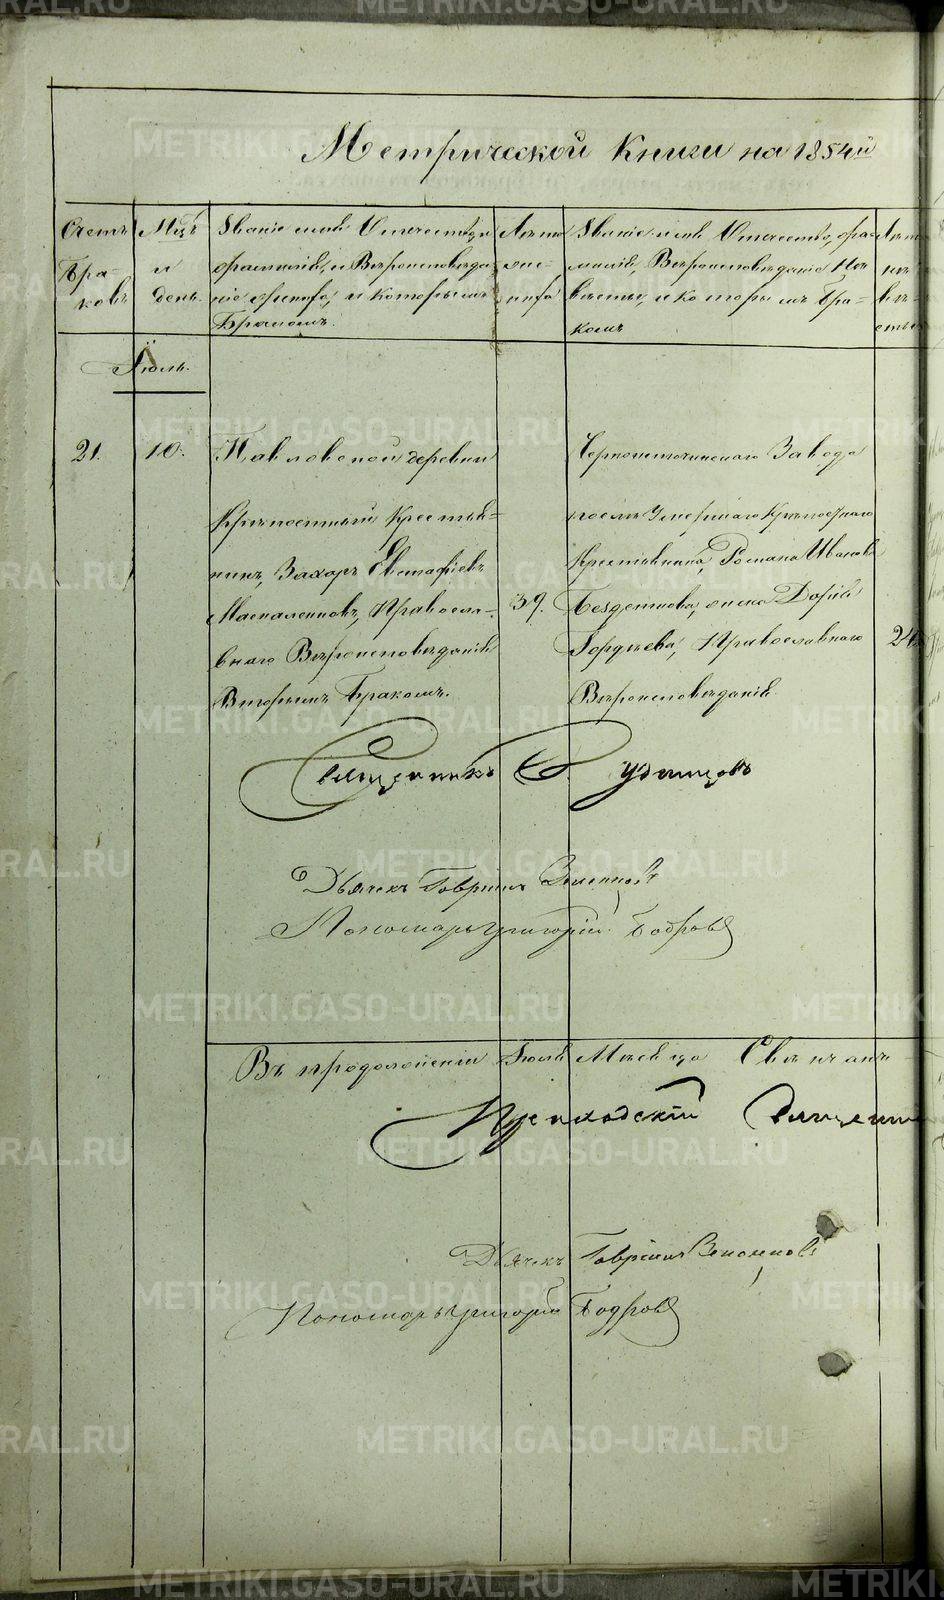 Метрической Книги на 1854й
Счетъ браковъ
Мцъ и день.
Званiе имя Отечество фамилiя, и Вероисповеданiе жениха, и которымъ Бракомъ.
Лета жениха
Званiе, имя Отечество, фамилiя, Вероисповеданiе Невесты, и которымъ Бракомъ
Лета невесты
Iюль.
21.
10.
Павловской деревни
Крѣпостный Крестья-
нинъ, Захаръ Евстафiевъ
Маскаленковъ, Правосла-
внаго Вѣроисповѣданiя
Вторымъ Бракомъ.
39.
Черноисточинскаго Завода
послѣ Умершаго Крѣпостнаго
Крестьянина, Романа Иванова
Бездетнова, жена Дарiя
Гордѣева, Православнаго
Вѣроисповѣданiя.
24
Священникъ С. Удинцовъ
Дьячекъ Гаврiилъ
Пономарь Григорiй Бобровъ
Въ продолженiи Iюля Месяца Бракъ
Приходскiй Священни
Дьячекъ Гаврiилъ
Пономарь Григорiй Бобровъ
METRIKI.GASO-URAL.RU